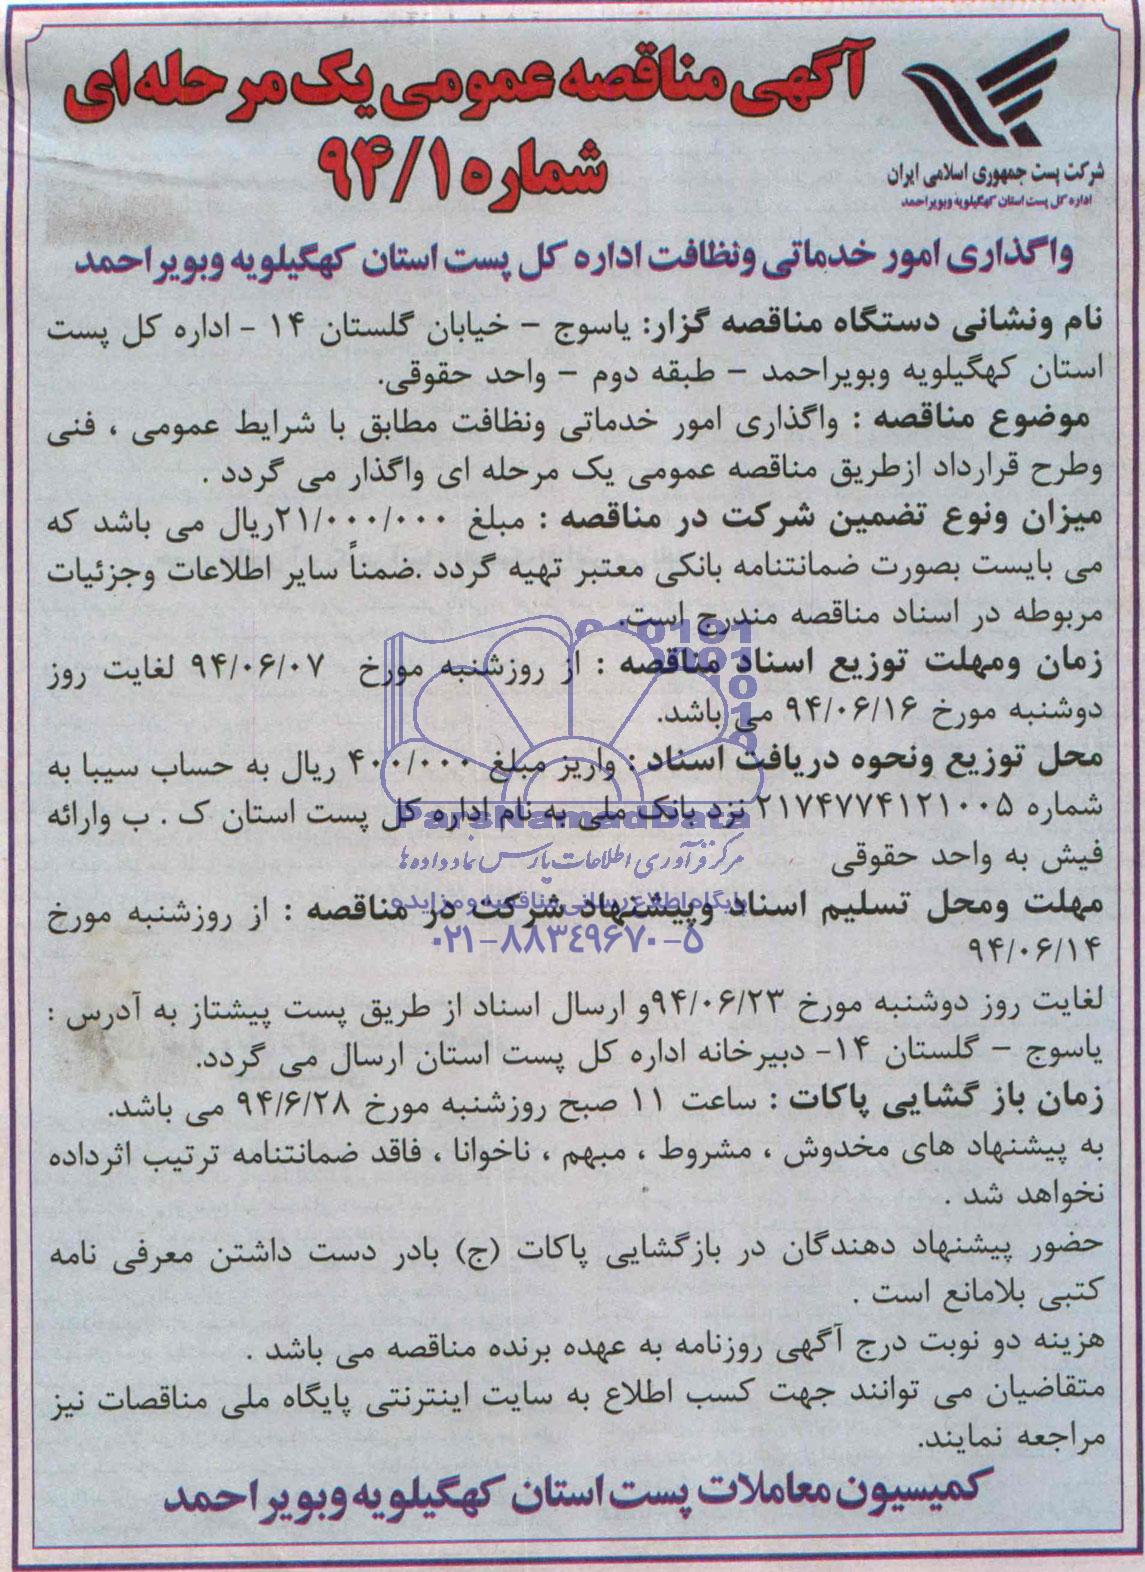 شرکت پست جمهوری اسلامی ایران
اداره کل پست استان کهگیلویه وبویراحمد
آگهی مناقصه عمومی یک مرحله ای
شماره ۹۴/۱
واگذاری امور خدماتی ونظافت اداره کل پست استان کهگیلویه وبویراحمد
نام ونشانی دستگاه مناقصه گزار: یاسوج – خیابان گلستان ۱۴ - اداره کل پست
استان کهگیلویه وبویراحمد – طبقه دوم – واحد حقوقی.
موضوع مناقصه : واگذاری امور خدماتی ونظافت مطابق با شرایط عمومی ، فنی
وطرح قرارداد ازطریق مناقصه عمومی یک مرحله ای واگذار می گردد .
میزان ونوع تضمین شرکت در مناقصه : مبلغ ۲۱/۰۰۰/۰۰۰ریال می باشد که
می بایست بصورت ضمانتنامه بانکی معتبر تهیه گردد .ضمناً سایر اطلاعات وجزئیات
مربوطه در اسناد مناقصه مندرج است.
زمان ومهلت توزیع اسناد مناقصه : از روزشنبه مورخ ۹۴/۰۶/۰۷ لغایت روز
دوشنبه مورخ ۹۴/۰۶/۱۶ می باشد.
محل توزیع ونحوه دریافت اسناد : واریز مبلغ ۴۰۰/۰۰۰ ریال به حساب سیبا به
شماره ۲۱۷۴۷۷۴۱۲۱۰۰۵ نزد بانک ملی به نام اداره کل پست استان ک . ب وارائه
فیش به واحد حقوقی
مهلت ومحل تسلیم اسناد وپیشنهاد شرکت در مناقصه : از روزشنبه مورخ
۹۴/۰۶/۱۴
لغایت روز دوشنبه مورخ ۹۴/۰۶/۲۳و ارسال اسناد از طریق پست پیشتاز به آدرس :
یاسوج – گلستان ۱۴- دبیرخانه اداره کل پست استان ارسال می گردد.
زمان باز گشایی پاکات : ساعت ۱۱ صبح روزشنبه مورخ ۹۴/۶/۲۸ می باشد.
به پیشنهاد های مخدوش ، مشروط ، مبهم ، ناخوانا ، فاقد ضمانتنامه ترتیب اثرداده
نخواهد شد .
حضور پیشنهاد دهندگان در بازگشایی پاکات (ج) بادر دست داشتن معرفی نامه
کتبی بلامانع است .
هزینه دو نوبت درج آگهی روزنامه به عهده برنده مناقصه می باشد .
متقاضیان می توانند جهت کسب اطلاع به سایت اینترنتی پایگاه ملی مناقصات نیز
مراجعه نمایند.
کمیسیون معاملات پست استان کهگیلویه وبویراحمد
ParsNamadData
مرکز فرآوری اطلاعات پارس نماد داده ها
پایگاه اطلاع رسانی مناقصه و مزایده
۰۲۱-۸۸۳۴۹۶۷۰-۵